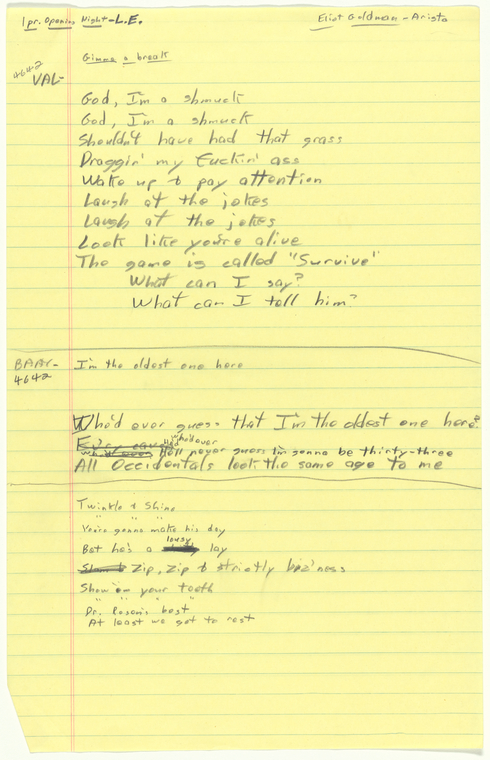 1 pr. Opening Night - L.E.
Eliot Goldman - Arista
Gimme a break
4642
VAL-
God, I'm a shmuck
God, I'm a shmuck
Shouldn't have had that grass
Draggin' my fuckin' ass
Wake up & pay attention
Laugh at the jokes
Laugh at the jokes
Look like you're alive
The game is called "Survive"
What can I say?
What can I tell him?
BAAY-
4642
I'm the oldest one here
Who'd ever guess that I'm the oldest one here?
Who'd ever
He'll never guess I'm gonna be thirty-three
All Occidentals look the same age to me
Twinkle & Shine
" " "
You're gonna make his day
lousy
But he's a lay
Zip, Zip & strictly biz'ness
Show 'em your teeth
" " " "
Dr. Rosen's best
At least we got to rest